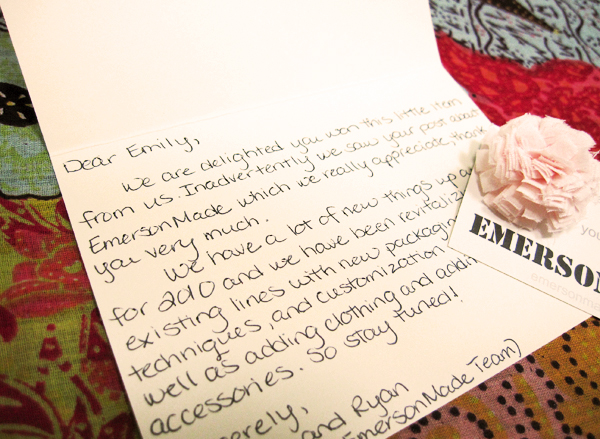 Dear Emily,
We are delighted you won this little item
from us. Inadvertently we saw your post about
EmersonMade which we really appreciate, thank
you very much.
We have a lot of new things up
for 2010 and we have been
existing lines with new
techniques, and customization
well as adding clothing and
accessories. So stay tuned!
and Ryan
EmersonMade Team)
EMERSON